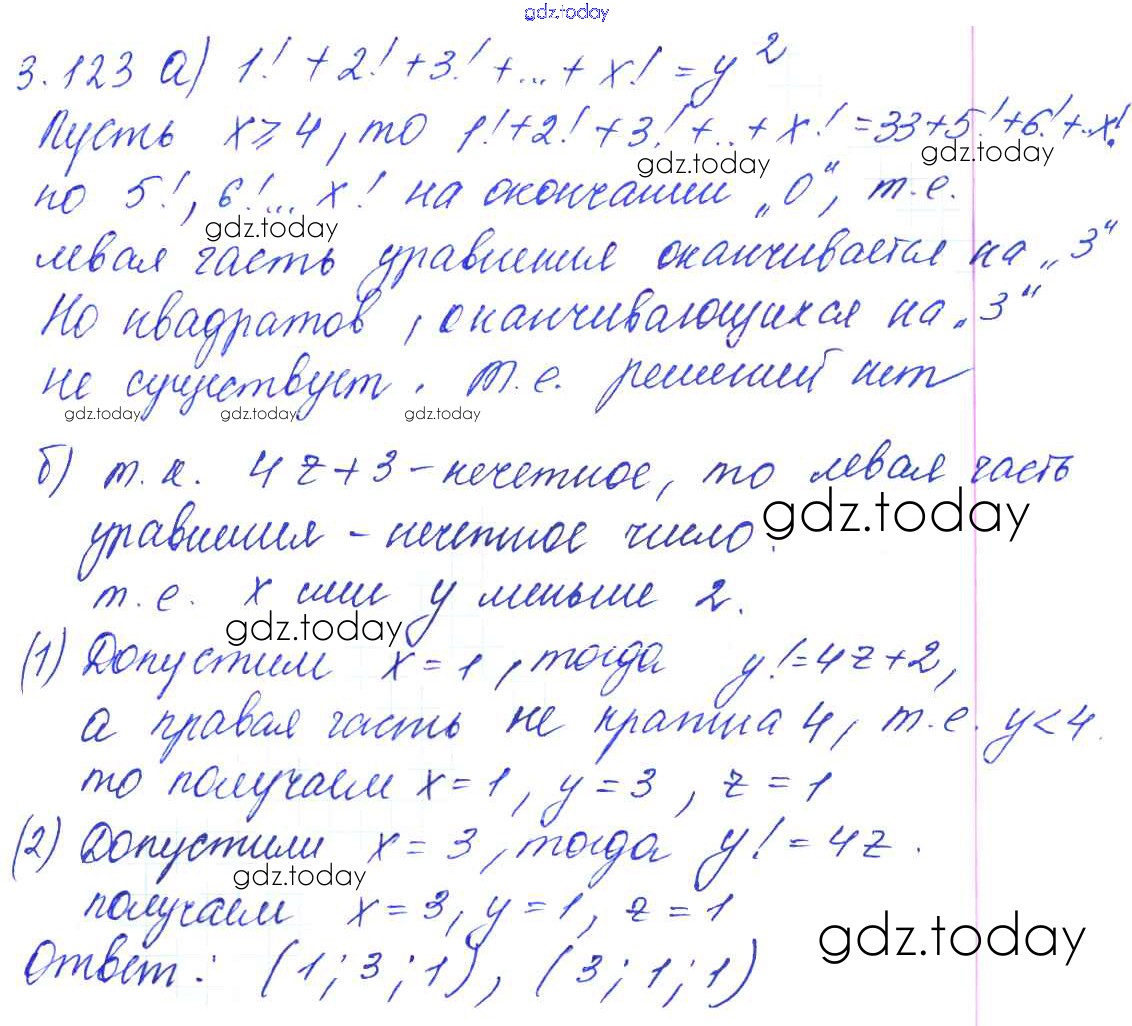 gdz.today
3.123 а) 1! + 2! + 3! + ... + x! = y²
Пусть x ⩾ 4, то 1! + 2! + 3! + .. + x! = 33 + 5! + 6! + .. x!
gdz.today gdz.today
но 5!, 6! ... x! на окончании „0“, т.е.
gdz.today
левая часть уравнения оканчивается на „3“
Но квадратов, оканчивающихся на „3“
не существует. Т.е. решений нет
gdz.today gdz.today gdz.today
б) т.к. 4z+3 - нечетное, то левая часть
gdz.today
уравнения - нечетное число.
т.е. x или y меньше 2.
gdz.today
(1) Допустим x = 1, тогда y! = 4z+2,
а правая часть не кратна 4, т.е. y < 4.
то получаем x = 1, y = 3, z = 1
(2) Допустим x = 3, тогда y! = 4z.
gdz.today
получаем x = 3, y = 1, z = 1
gdz.today
Ответ: (1; 3; 1), (3; 1; 1)